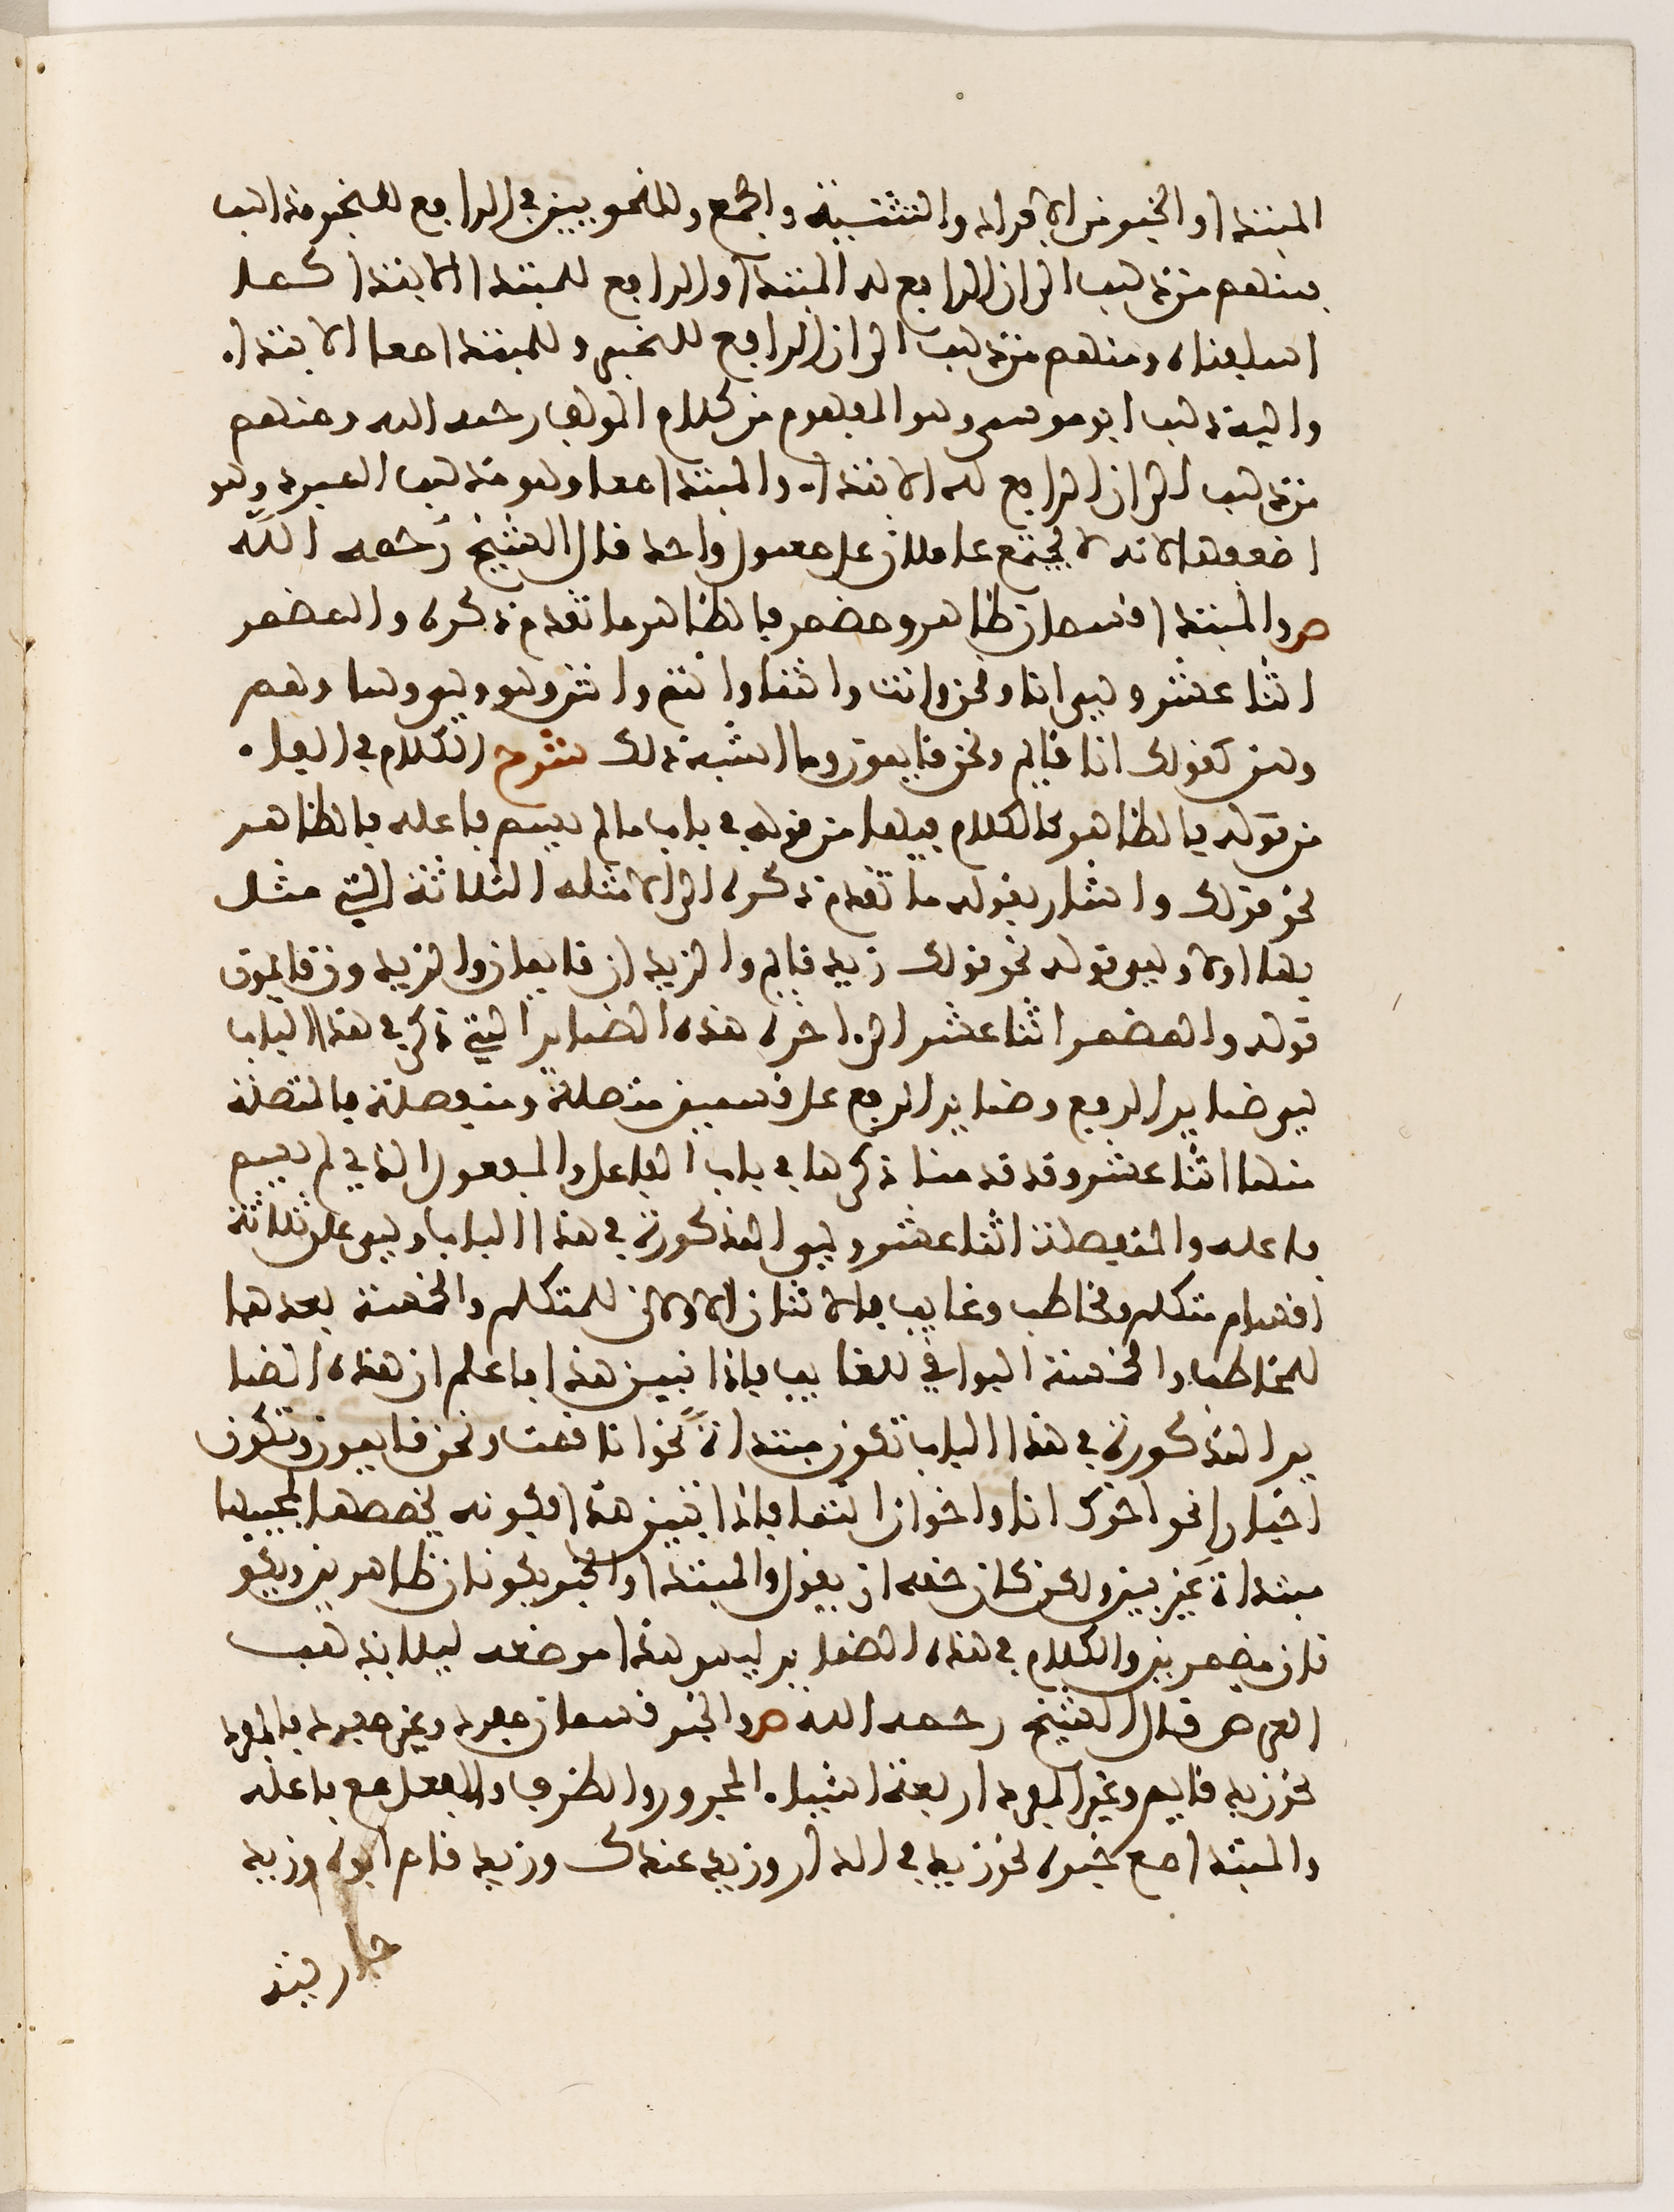 المبتدا والخبر من الافراد والتثنية والجمع وللنحويين في الرافع للخبر مذاهب
فمنهم من ذهب الى ان الرافع له المبتدا والرافع للمبتدا الابتدا كما
اسلفناه ومنهم من ذهب الى ان الرافع للخبر وللمبتدا معا الابتداء
واليه ذهب ابو موسى وهو المفهوم من كلام المولف رحمه الله ومنهم
من ذهب الى ان الرافع له الابتداء والمبتدا معا وهو مذهب المبرد وهو
اضعفها لانه لا يجتمع عاملان على معمول واحد قال الشيخ رحمه الله
ص والمبتدا قسمان ظاهر ومضمر فالظاهر ما تقدم ذكره والمضمر
اثنا عشر وهي انا ونحن وانت وانتما وانتم وانتن وهو وهي وهما وهم
وهن كقولك انا قايم ونحن قايمون وما اشبه ذلك شرح الكلام في الفاء
من قوله فالظاهر كالكلام فيها من قوله في باب ما لم يسم فاعله فالظاهر
نحو قولك واشار بقوله ما تقدم ذكره الى الامثلة الثلاثة التي مثل
بها اولا وهي قوله نحو قولك زيد قايم والزيدان قايمان والزيدون قايمون
قوله والمضمر اثنا عشر الى اخره هذه الضماير التي ذكر في هذا الباب
هي ضماير الرفع وضماير الرفع على قسمين متصلة ومنفصلة فالمتصلة
منها اثنا عشر وقد قدمنا ذكرها في باب الفاعل والمفعول الذي لم يسم
فاعله والمنفصلة اثنا عشر وهي المذكورة في هذا الباب وهي على ثلاثة
اقسام متكلم ومخاطب وغايب فالاثنان الاولان للمتكلم والخمسة بعدها
للمخاطب والخمسة البواقي للغايب فاذا تبين هذا فاعلم ان هذه الضما
ير المذكورة في هذا الباب تكون مبتداة نحو انا قمت ونحن قايمون وتكون
اخبارا نحو اخوك انا واخوان انتما فاذا تبين هذا فكونه يخصصها بمجيبها
مبتداة غير بين ولكن كان حقه ان يقول والمبتدا والخبر يكونان ظاهرين ويكو
نان مضمرين والكلام في هذه الضماير ليس هذا موضعه ليلا يذهب
الغرض قال الشيخ رحمه الله ص والخبر قسمان مفرد وغير مفرد فالمفرد
نحو زيد قايم وغير المفرد اربعة اشياء المجرور والظرف والفعل مع فاعله
والمبتدا مع خبره نحو زيد في الدار وزيد عندك وزيد قام ابوه وزيد
جاريته